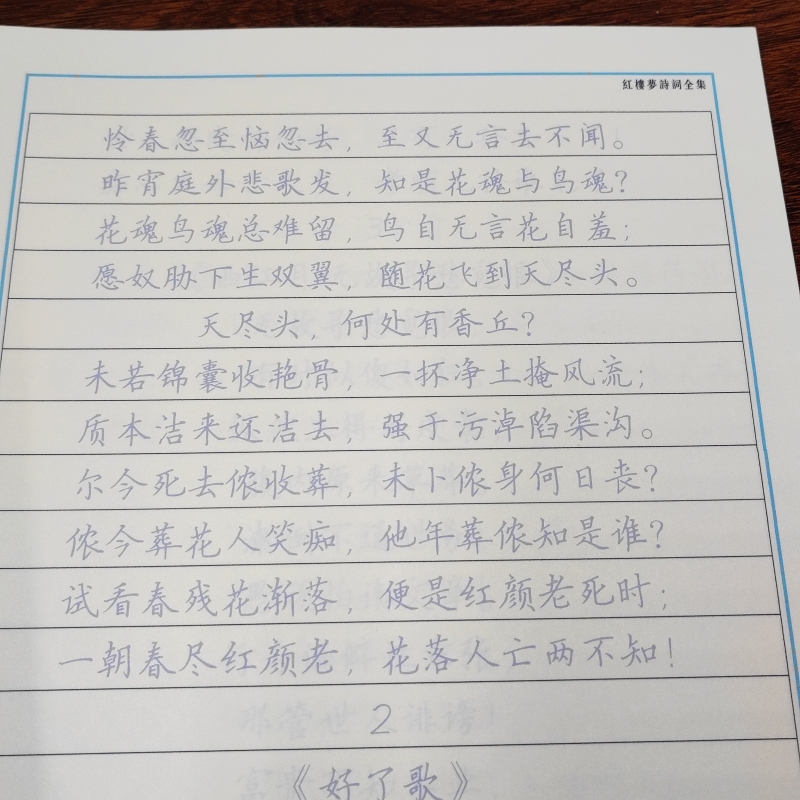 紅樓夢詩詞全集
怜春忽至恼忽去，至又无言去不闻。
昨宵庭外悲歌发，知是花魂与鸟魂？
花魂鸟魂总难留，鸟自无言花自羞；
愿奴胁下生双翼，随花飞到天尽头。
天尽头，何处有香丘？
未若锦囊收艳骨，一抔净土掩风流；
质本洁来还洁去，强于污淖陷渠沟。
尔今死去侬收葬，未卜侬身何日丧？
侬今葬花人笑痴，他年葬侬知是谁？
试看春残花渐落，便是红颜老死时；
一朝春尽红颜老，花落人亡两不知！
2
《好了歌》